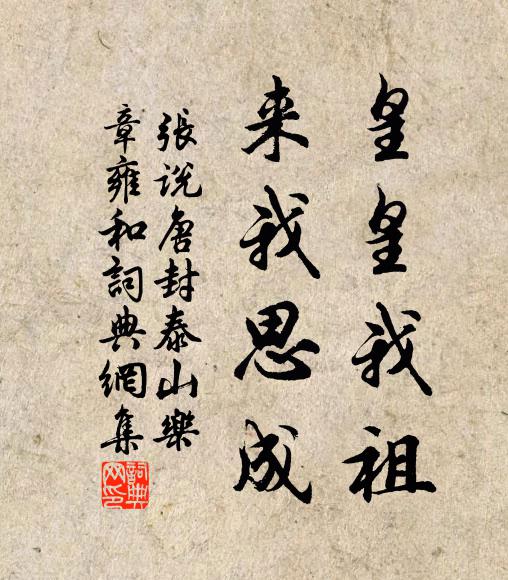 皇皇我祖
来我思成
張说唐封泰山樂
章雍和詞典網集
詞典
网印